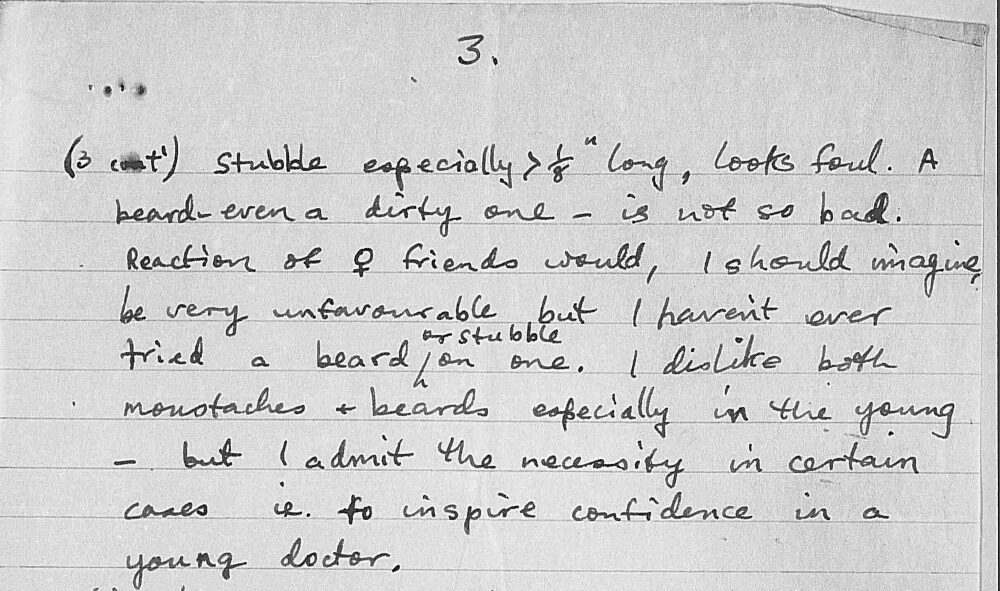 3.
(3 cont') Stubble especially > 1/8" long, looks foul. A
beard - even a dirty one - is not so bad.
Reaction of ♀ friends would, I should imagine,
be very unfavourable but I haven't ever
or stubble
tried a beard / on one. I dislike both
moustaches + beards especially in the young
- but I admit the necessity in certain
cases ie. to inspire confidence in a
young doctor.